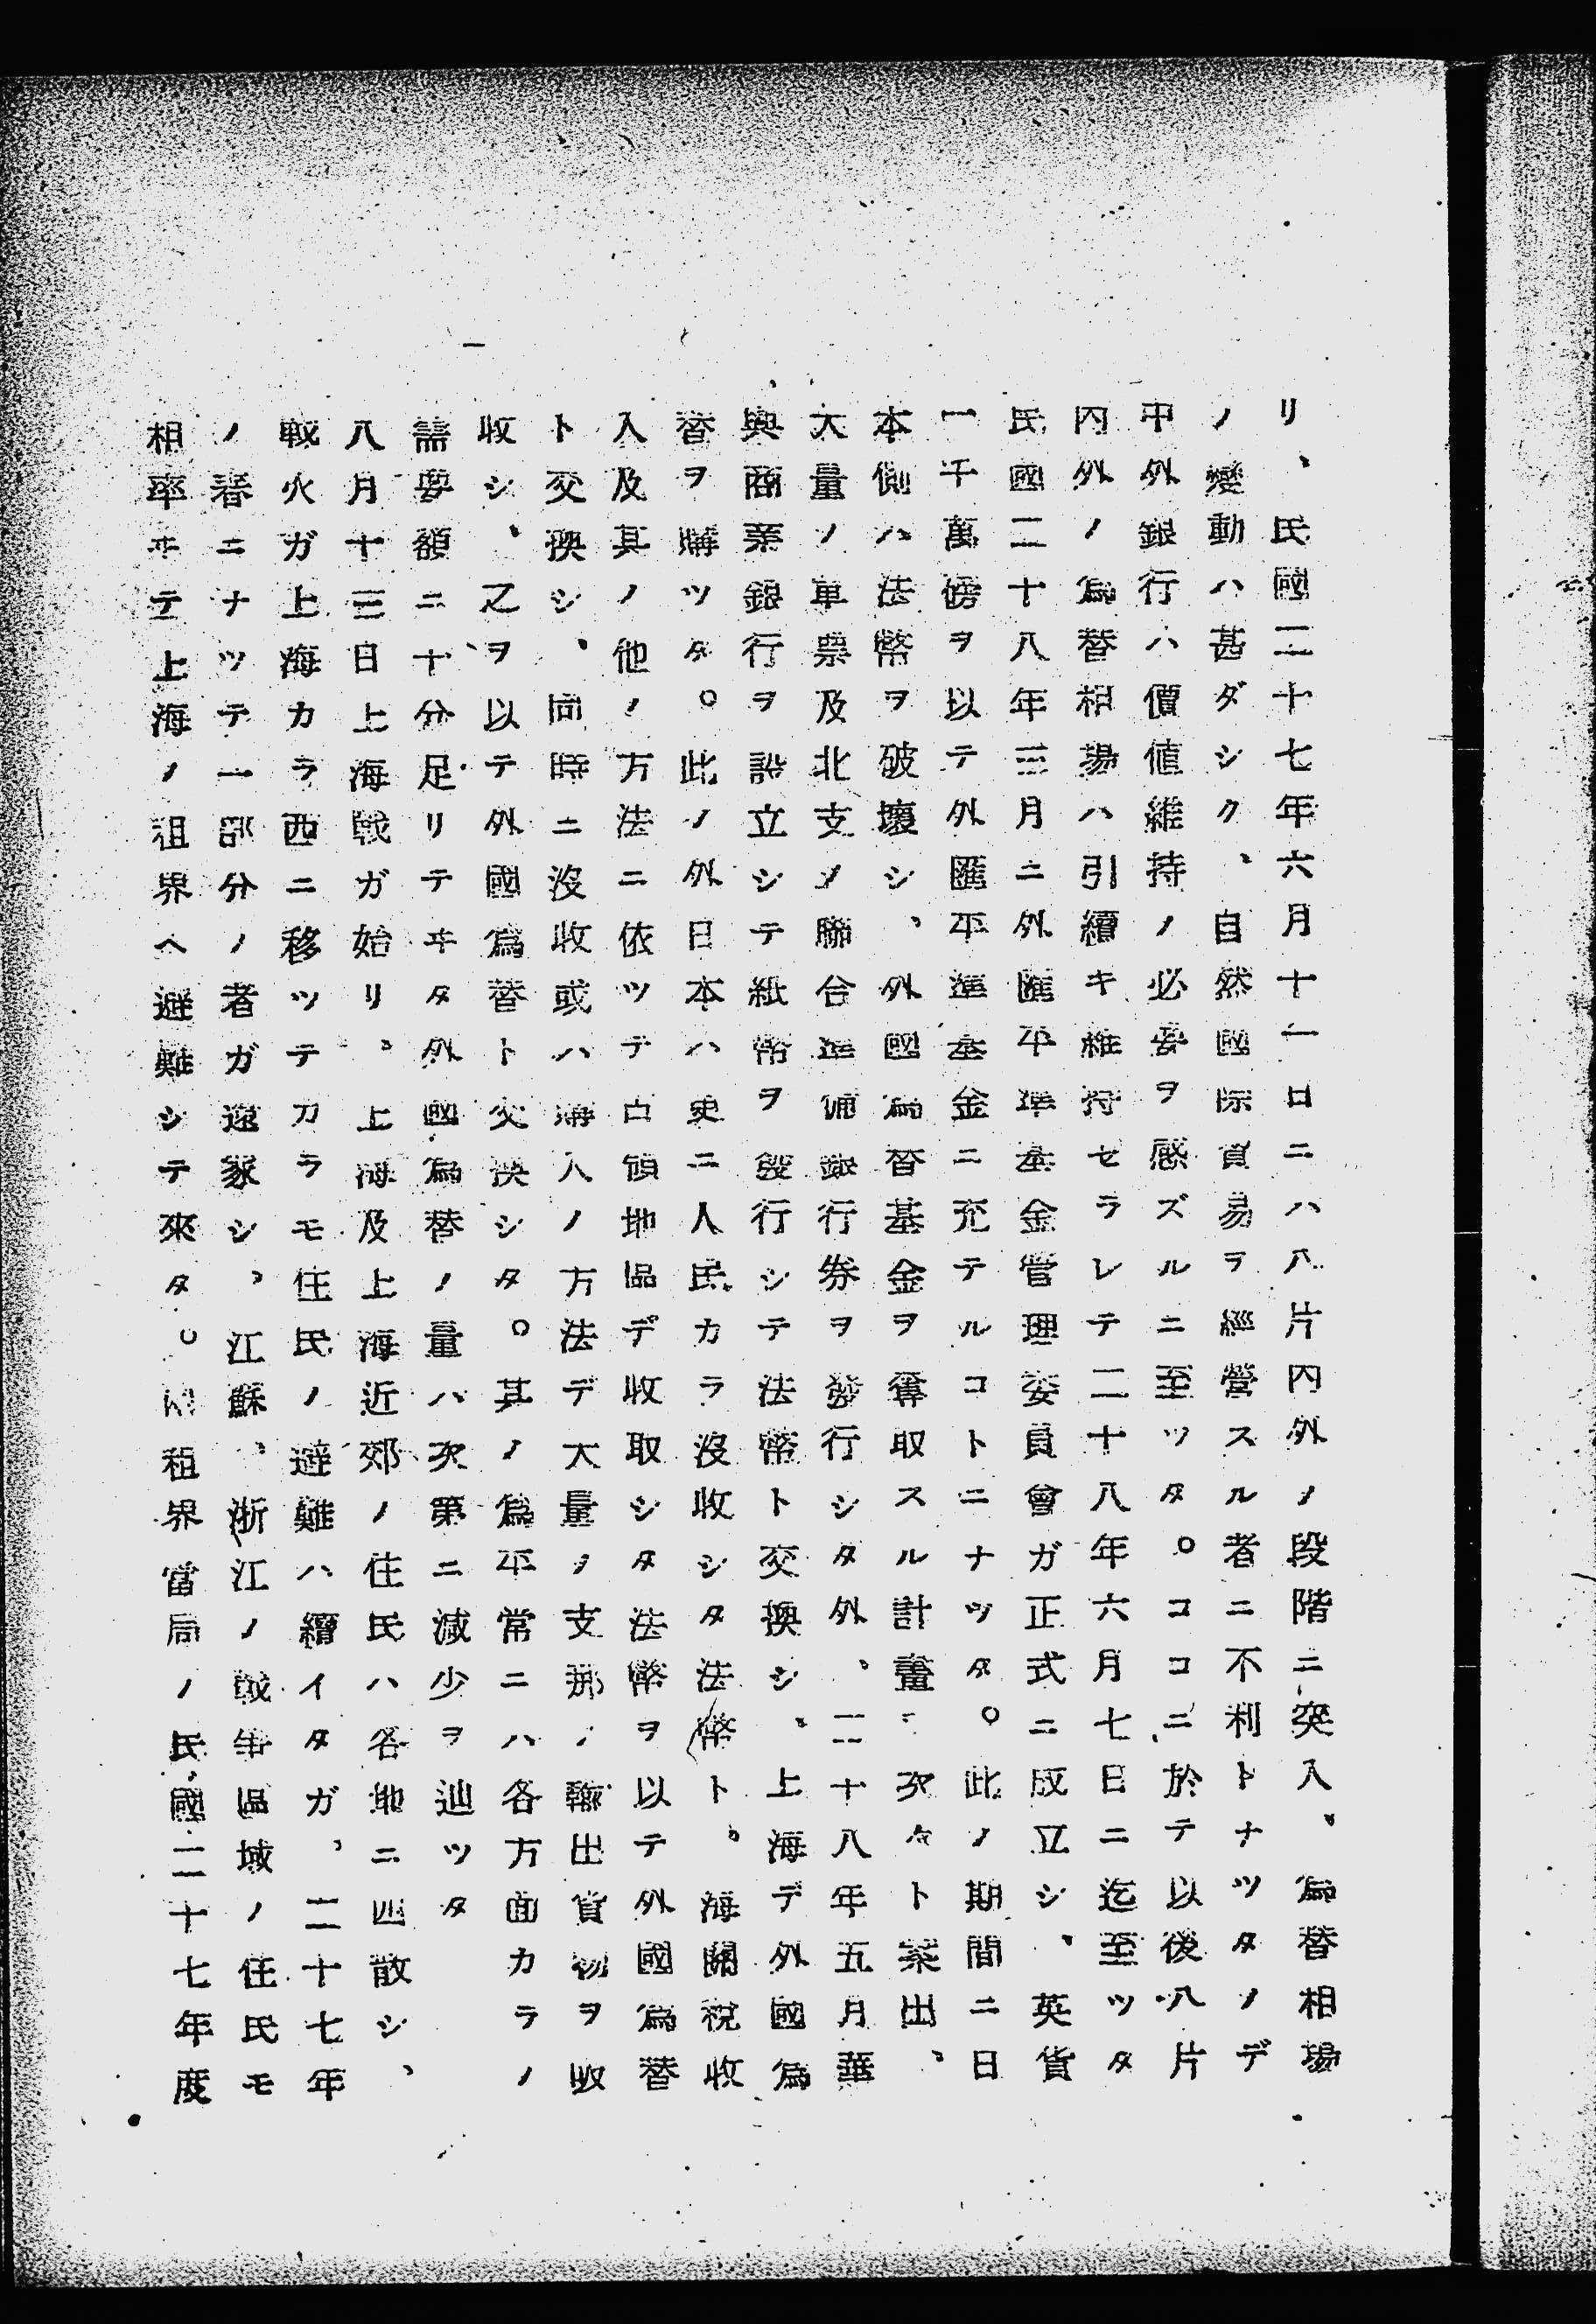 リ、民國二十七年六月十一日ニハ八片内外ノ段階ニ突入、爲替相場
ノ變動ハ甚ダシク、自然國際貿易ヲ經營スル者ニ不利トナツタノデ
中外銀行ハ價値維持ノ必要ヲ感ズルニ至ツタ。ココニ於テ以後八片
内外ノ爲替相場ハ引續キ維持セラレテ二十八年六月七日ニ迄至ツタ
民國二十八年三月ニ外匯平準基金管理委員會ガ正式ニ成立シ、英貨
一千萬磅ヲ以テ外匯平準基金ニ充テルコトニナツタ。此ノ期間ニ日
本側ハ法幣ヲ破壞シ、外國爲替基金ヲ奪取スル計畫ヲ次々ト案出、
大量ノ軍票及北支ノ聯合準備銀行券ヲ發行シタ外、二十八年五月華
興商業銀行ヲ設立シテ紙幣ヲ發行シテ法幣ト交換シ、上海デ外國爲
替ヲ購ツタ。此ノ外日本ハ更ニ人民カラ沒收シタ法幣ト、海關稅收
入及其ノ他ノ方法ニ依ツテ占領地區デ收取シタ法幣ヲ以テ外國爲替
ト交換シ、同時ニ沒收或ハ購入ノ方法デ大量ノ支那ノ輸出貨物ヲ收
收シ、之ヲ以テ外國爲替ト交換シタ。其ノ爲平常ニハ各方面カラノ
需要額ニ十分足リテヰタ外國爲替ノ量ハ次第ニ減少ヲ辿ツタ
八月十三日上海戰ガ始リ、上海及上海近郊ノ住民ハ各地ニ四散シ、
戰火ガ上海カラ西ニ移ツテカラモ住民ノ避難ハ續イタガ、二十七年
ノ春ニナツテ一部分ノ者ガ還家シ、江蘇、浙江ノ戰爭區域ノ住民モ
相率ヰテ上海ノ租界ヘ避難シテ來タ。租界當局ノ民國二十七年度